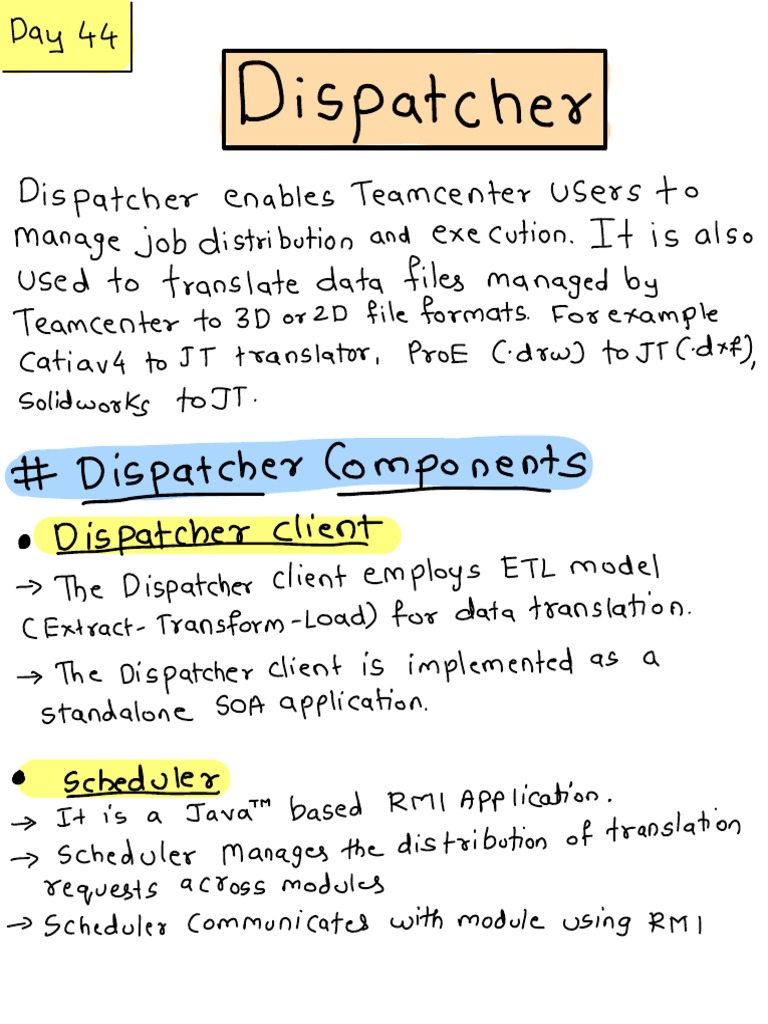 Day 44
Dispatcher
Dispatcher enables Teamcenter users to
manage job distribution and execution. It is also
used to translate data files managed by
Teamcenter to 3D or 2D file formats. For example
Catiav4 to JT translator, ProE (.drw) to JT (.dxf),
Solidworks to JT.
# Dispatcher Components
• Dispatcher client
→ The Dispatcher client employs ETL model
(Extract-Transform-Load) for data translation.
→ The Dispatcher client is implemented as a
standalone SOA application.
• Scheduler
→ It is a Java™ based RMI Application.
→ Scheduler Manages the distribution of translation
requests across modules
→ Scheduler communicates with module using RMI